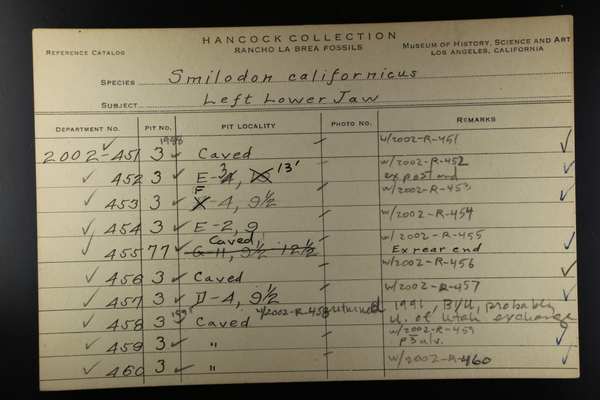 HANCOCK COLLECTION
REFERENCE CATALOG RANCHO LA BREA FOSSILS MUSEUM OF HISTORY, SCIENCE AND ART
LOS ANGELES, CALIFORNIA
SPECIES Smilodon californicus
SUBJECT Left Lower Jaw
DEPARTMENT NO. PIT NO. PIT LOCALITY PHOTO NO. REMARKS
2002-451 3 Caved w/2002-R-451
452 3 E-3, 13' w/2002-R-452
ex post end
453 3 F-4, 9½ w/2002-R-453
454 3 E-2, 9 w/2002-R-454
455 77 Caved w/2002-R-455
G-11, 9½ 12½ Ex rear end
456 3 Caved w/2002-R-456
457 3 D-4, 9½ w/2002-R-457
458 3 Caved w/2002-R-458 returned 1991, BYU, probably
U. of Utah exchange
459 3 " w/2002-R-459
460 3 " w/2002-R-460